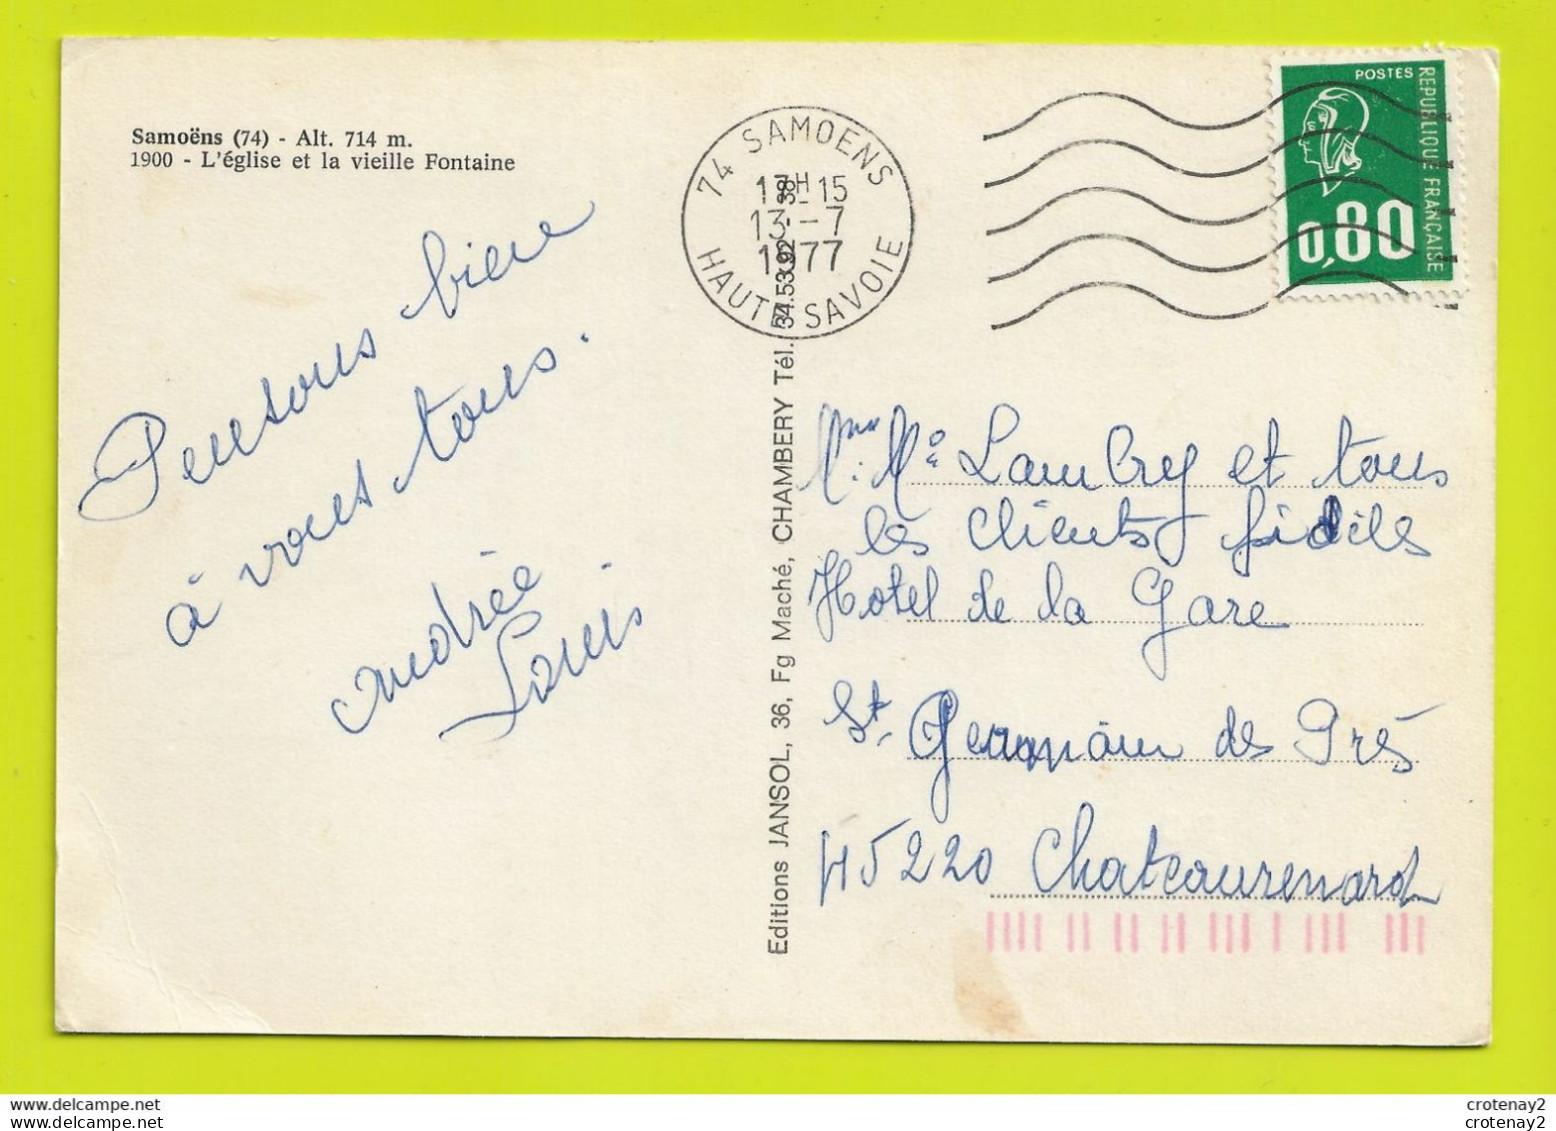 Samoëns (74) - Alt. 714 m.
1900 - L'église et la vieille Fontaine
Pensons bien
à vous tous.
Andrée
Louis
74 SAMOENS
17H15
13-7
1977
HAUTE SAVOIE
POSTES
REPUBLIQUE FRANÇAISE
0,80
Editions JANSOL, 36, Fg Maché, CHAMBERY Tél. 34.53.92 - 38
Lambry et tous
les clients fidèles
Hotel de la Gare
St. Germain des Prés
45220 Chateaurenard
delcampe.net
crotenay2
crotenay2